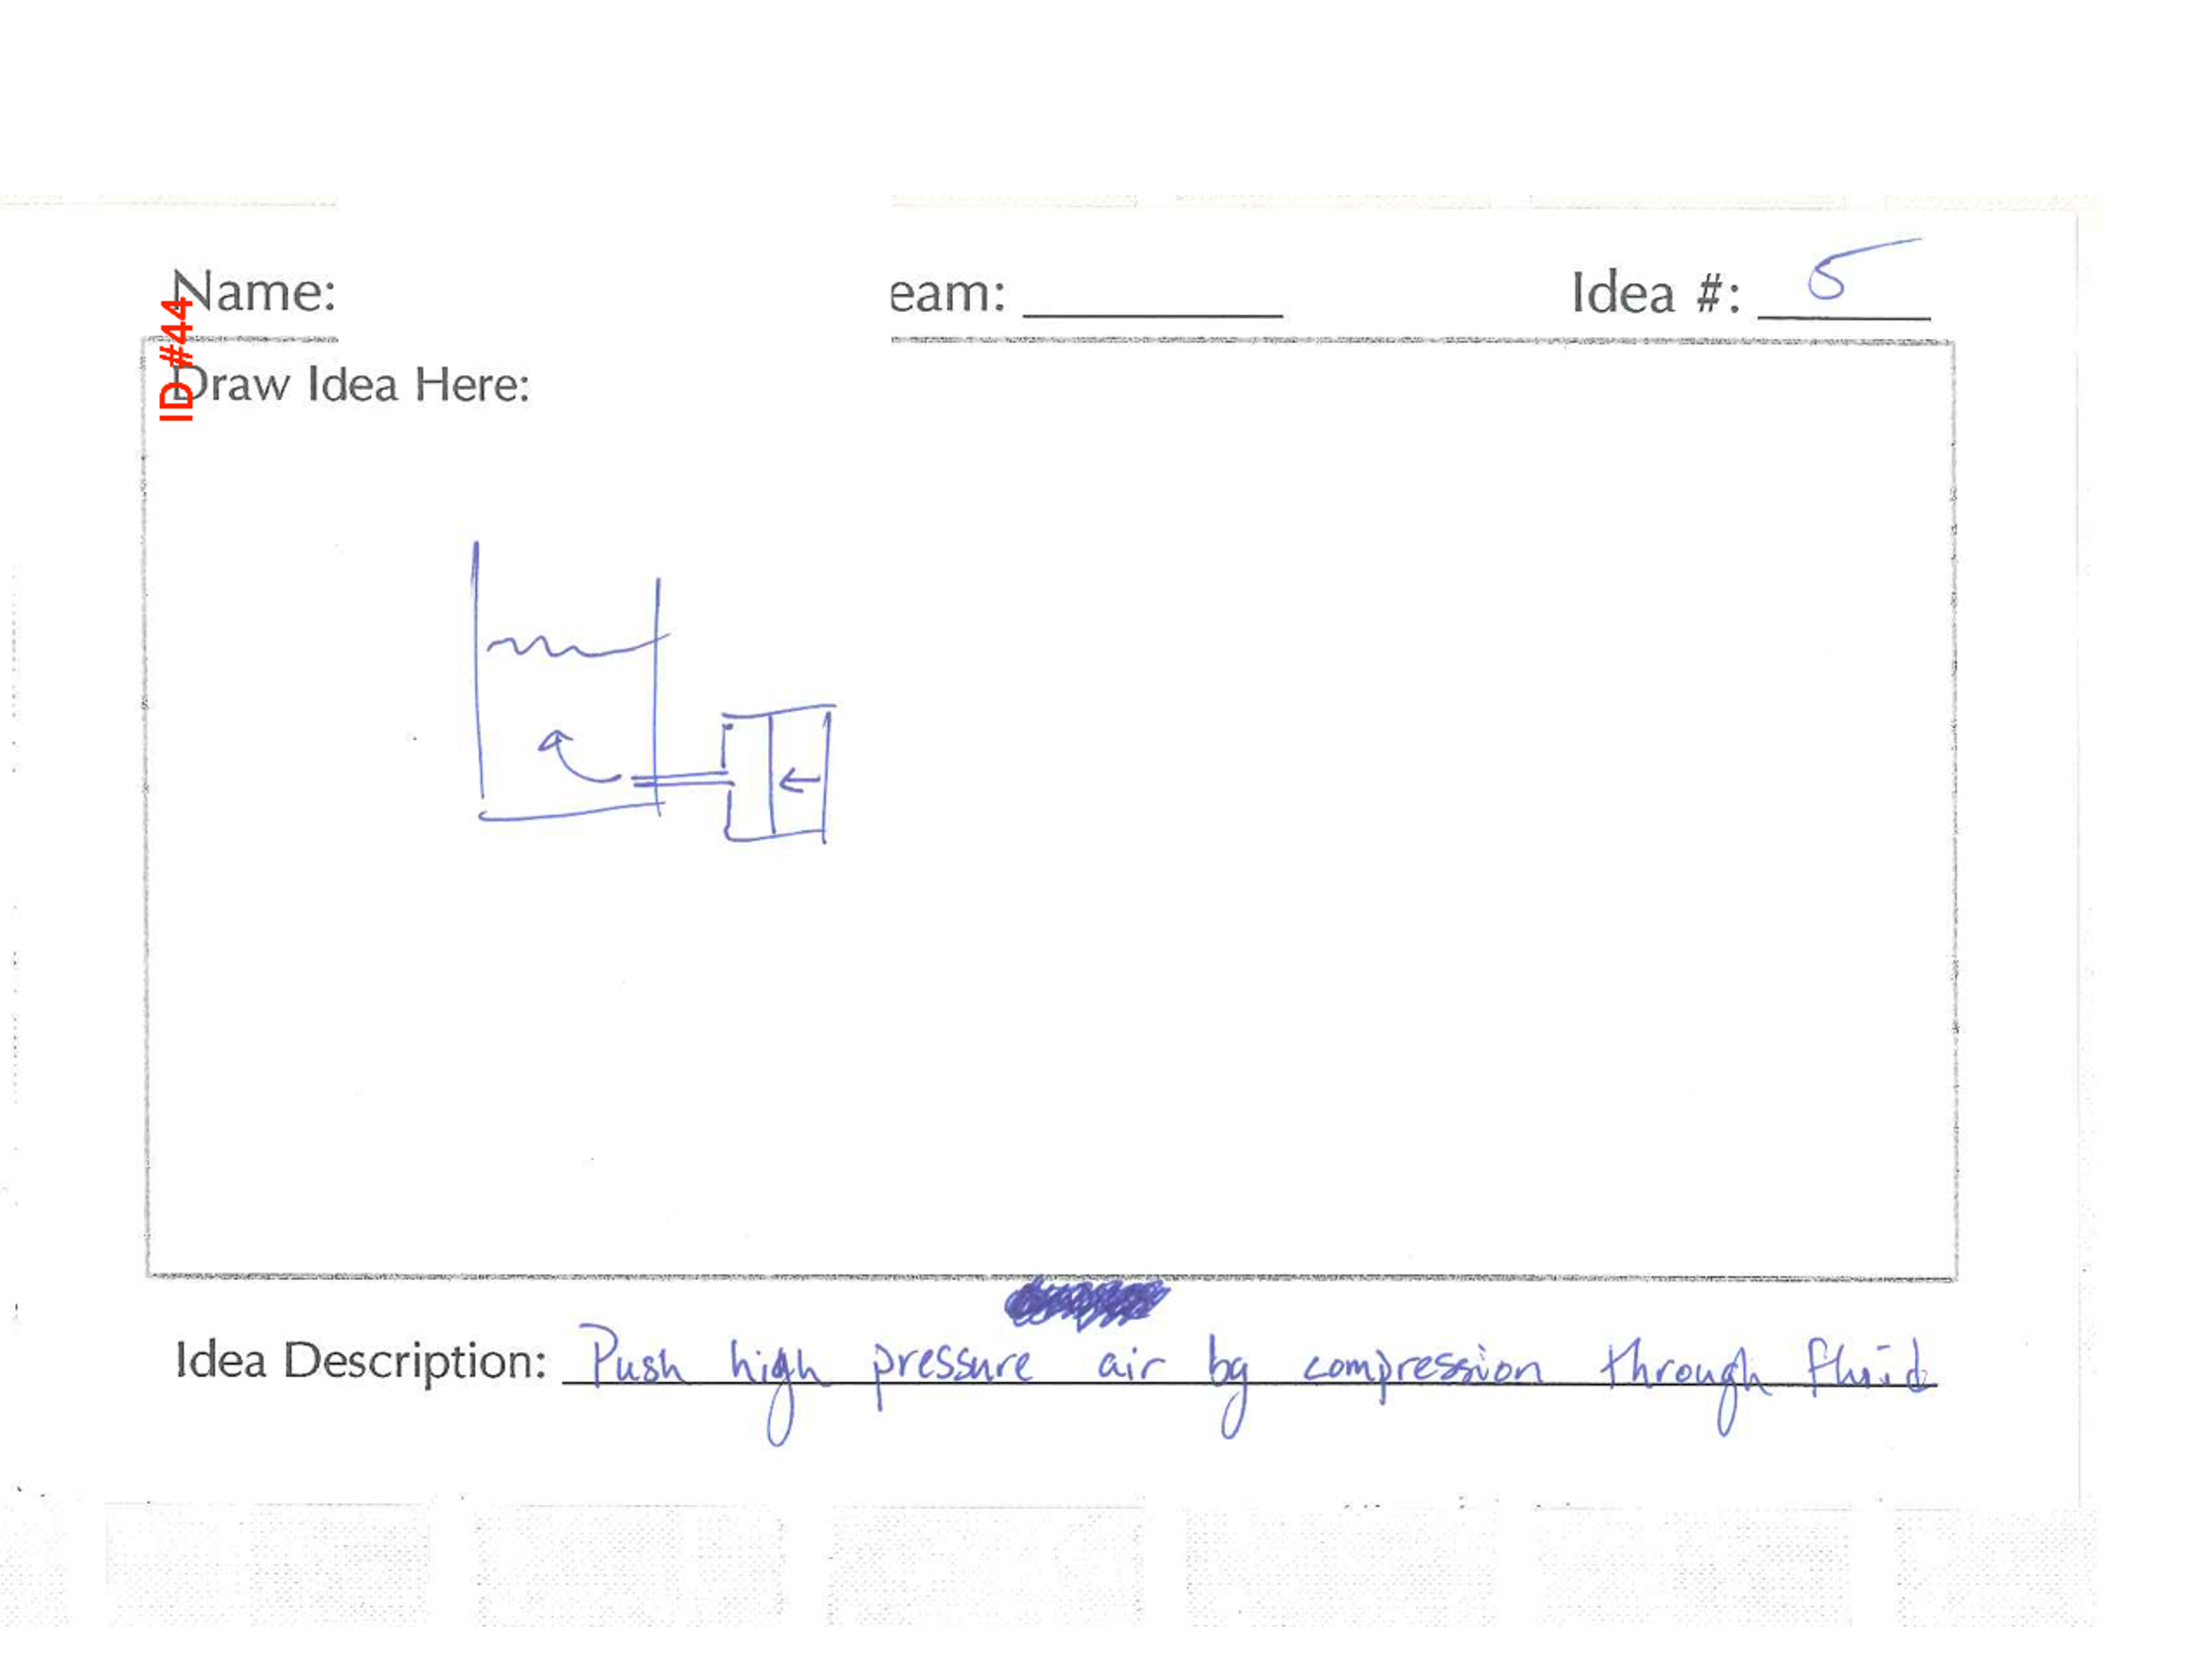 Name: eam: Idea #: 5
ID#44
Draw Idea Here:
Idea Description: Push high pressure air by compression through fluid